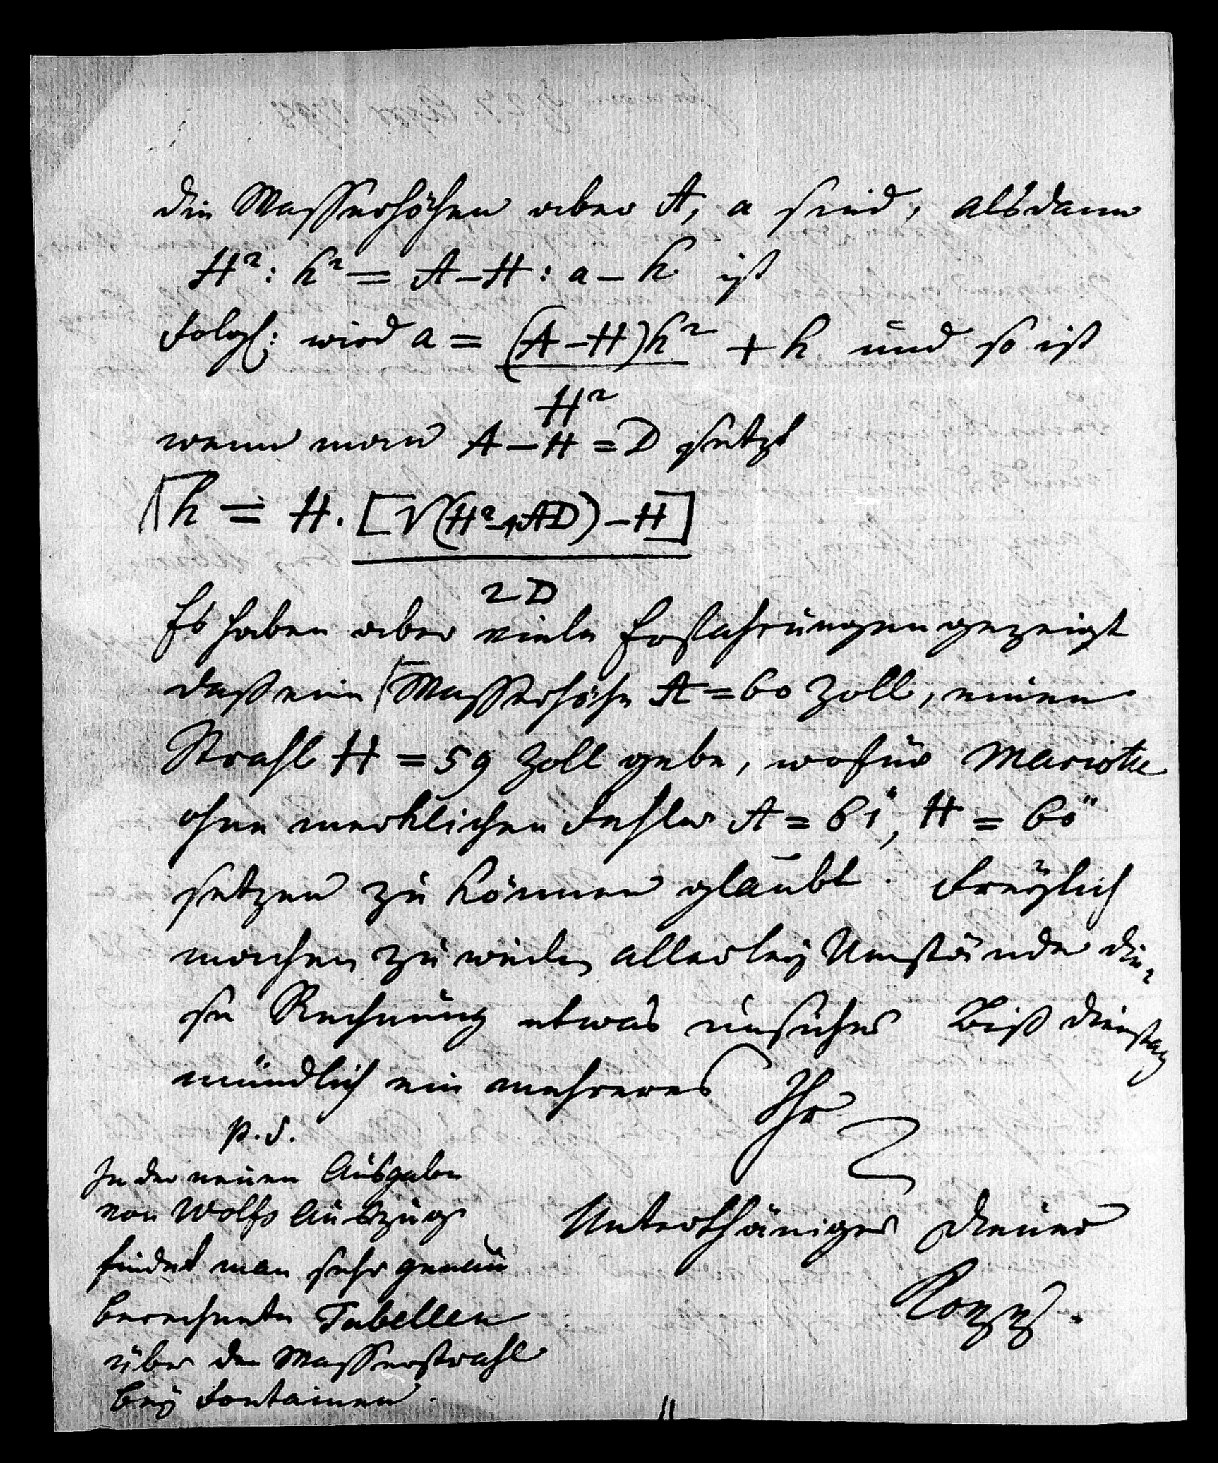 die Wasserhöhen aber A, a sind, alsdann
H²: h² = A – H : a – h ist
Folgl: wird a = (A – H)h² + h und so ist
H²
wenn man A – H = D setzt
h = H. [√(H²+4AD) – H]
2D
Es haben aber viele Erfahrungen gezeigt
daß eine Wasserhöhe A = 60 Zoll, einen
Strahl H = 59 Zoll gebe, wofür Mariotte
ohne merklichen Fehler A = 61", H = 60"
setzen zu können glaubt. Freÿlich
machen zu weilen allerleÿ Umstände die-
se Rechnung etwas unsicher Biß Dienstag
mündlich ein mehreres Ihr
P.S.
In der neuen Ausgabe
von Wolfs Auszuge
findet man sehr genau
berechnete Tabellen
über den Wasserstrahl
beÿ Fontainen
Unterthäniger Diener